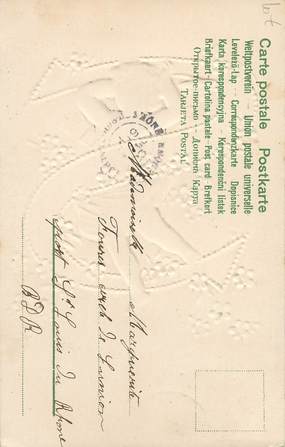 Carte postale Postkarte
Weltpostverein – Union postale universelle
Levelező-lap – Correspondenzkarte Dopisnice
Karta korespondencyjna – Korespondenční lístek
Briefkaart – Cartolina postale – Post card Brefkort
Открытое письмо – Дописна Карта
TARJETA POSTAL
Mademoiselle Marguerite
port St Louis du Rhone
B D R